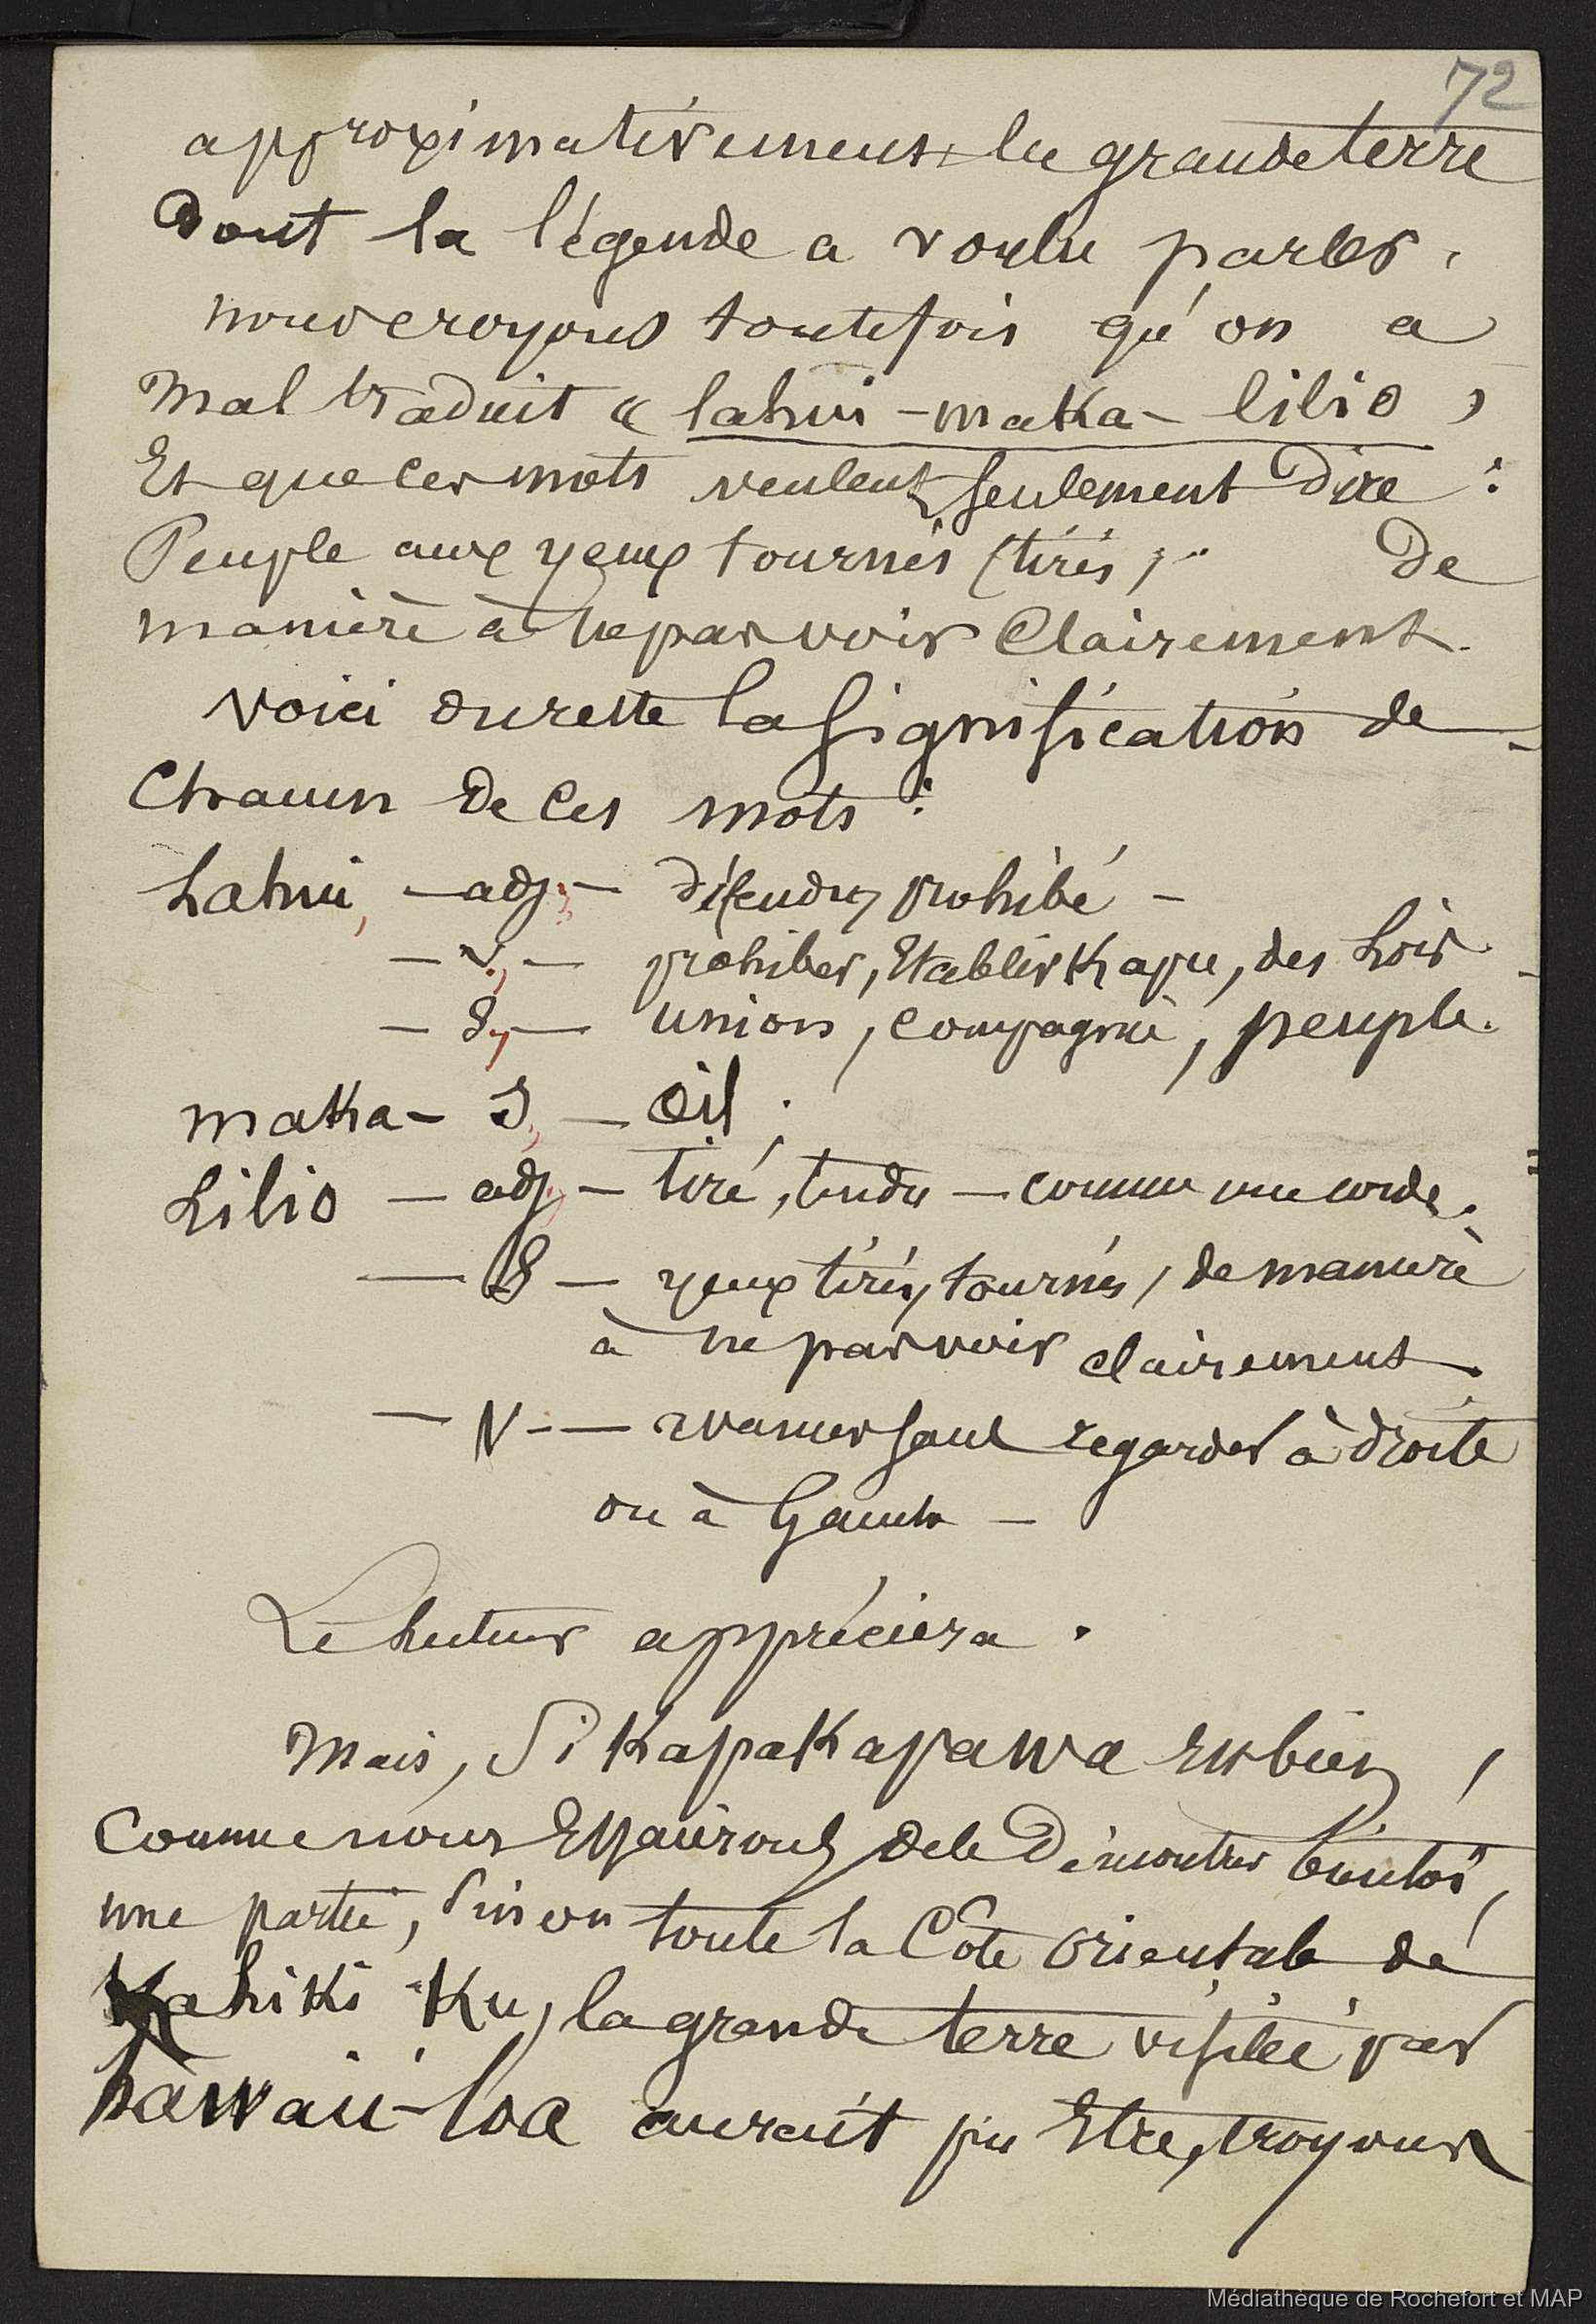 72
approximativement la grande terre
dont la légende a voulu parler.
nous croyons toutefois qu'on a
mal traduit « lahui - maka - lilio »
Et que ces mots veulent seulement dire :
Peuple aux yeux tournés (tirés) de
manière à ne pas voir clairement.
voici du reste la signification de
chacun de ces mots :
Lahui, - adj, - défendu, prohibé -
- v., - prohiber, Etablir Kapu, des Lois
- S, - union, compagnie, peuple.
maka - S, - Oeil.
Lilio - adj, - tiré, tendu - comme une corde.
- S - yeux tirés, tournés, de manière
à ne pas voir clairement.
- V - - sans regarder à droite
ou à Gauche -
Le Lecteur appréciera.
Mais, Si Kapakapawa est bien,
Comme nous Essaierons de le Démontrer bientôt,
une partie, sinon toute la Côte orientale de
Kahiki Ku, la grande terre visitée par
hawaii-loa aurait pu Etre, croyons
Médiathèque de Rochefort et MAP